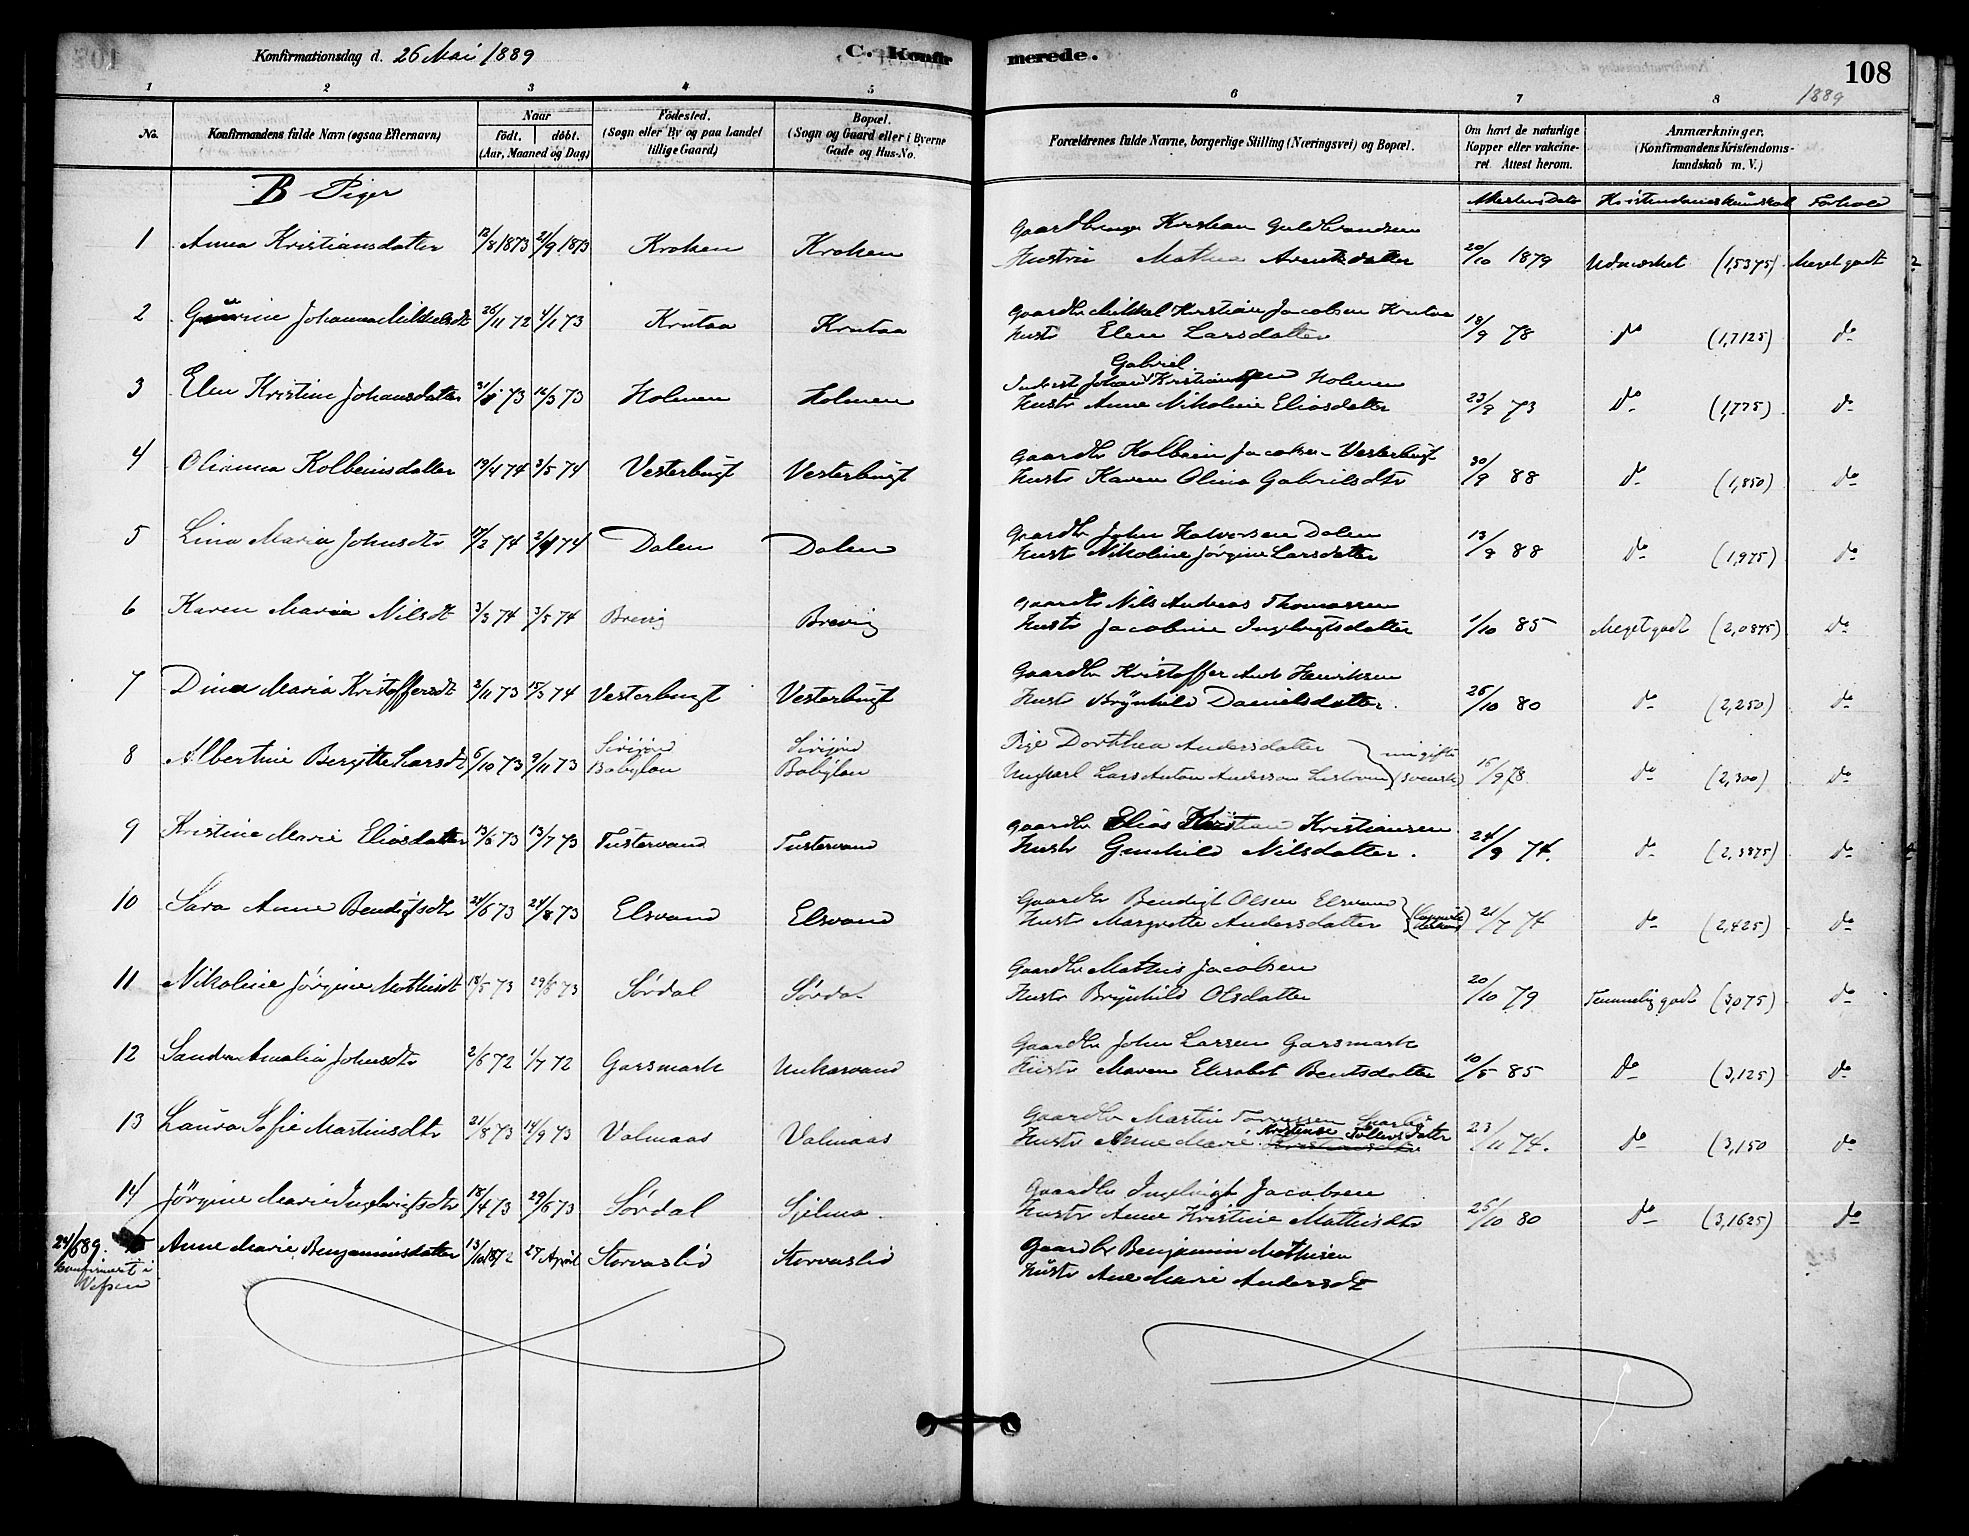 Konfirmationsdag d. 26 Mai 1889
C. Konfir merede.
108
1889
1 2 3 4 5 6 7 8
No.
Konfirmandens fulde Navn (ogsaa Efternavn)
Naar
født. døbt.
(Aar, Maaned og Dag)
Fødested.
(Sogn eller By og paa Landet
tillige Gaard)
Bopæl.
(Sogn og Gaard eller i Byerne
Gade og Hus-No.
Forældrenes fulde Navne, borgerlige Stilling (Næringsvei) og Bopæl.
Om havt de naturlige
Kopper eller vakcine-
ret. Attest herom.
Anmærkninger.
(Konfirmandens Kristendoms-
kundskab m. V.)
B Piger
Attestens Dato Kristendomskundskab Forhold
Gaardbruger Kristian Guldbrandsen
1 Anna Kristiansdatter 12/8 1873 21/9 1873 Kroken Kroken Hustru Mathea Arentsdatter 20/10 1879 Udmærket (1,5375) Meget godt
Gaardbr Mikkal Kristian Jacobsen Krutaa
2 Johanna Mikkelsdt 26/11 72 4/1 73 Krutaa Krutaa Hustr Elen Larsdatter 18/9 78 do (1,7125) do
Gabriel
Johan Kristiansen Holmen
3 Elen Kristine Johansdatter 73 16/3 73 Holmen Holmen Hustr Anne Nikoline Eliasdatter 23/9 73 do (1,775) do
Gaardbr Kolbein Jacobsen Vesterbugt
4 Olianna Kolbeinsdatter 19/4 74 3/5 74 Vesterbugt Vesterbugt Hustr Karen Olina Gabrielsdtr 30/9 88 do (1,850) do
Gaardbr John Halvorsen Dalen
5 Lina Maria Johnsdtr 74 74 Dalen Dalen Hustr Nikoline Jørgine Larsdatter 13/9 88 do (1,975) do
Gaardbr Nils Andreas Thomassen
6 Karen Maria Nilsdt 3/3 74 3/5 74 Brevig Brevig Hustr Jacobine Ingebrigtsdatter 1/10 85 Meget godt (2,0875) do
Gaardbr Kristoffer And Henriksen
7 Dina Maria Kristoffersdt 2/11 73 15/3 74 Vesterbugt Vesterbugt Hustr Brynhild Danielsdatter. 26/10 80 do (2,250) do
Pige Dorthea Andersdatter ugifte
8 Albertine Bergitte Larsdt 6/10 73 9/11 73 Babylon Babylon Ungkarl Lars Anton Anderson (svensk) 15/9 78 do (2,300) do
Gaardbr Elias Kristian Kristiansen
9 Kristine Marie Eliasdatter 13/6 73 13/7 73 Tustervand Tustervand Hustr Gunhild Nilsdatter. 24/9 74. do (2,3875) do
Gaardbr Bendigt Olsen Elsvand
10 Sara Anne Bendigtsdtr 24/6 73 24/8 73 Elsvand Elsvand Hustr Margrethe Andersdatter 21/7 74 do (2,425) do
Gaardbr Mathis Jacobsen
11 Nikoline Jørgine Mathisdt 18/5 73 29/6 73 Sørdal Sørdal Hustr Brynhild Olsdatter 20/10 79 Temmelig godt (3,075) do
Gaardbr John Larsen Garsmark
12 Sandra Amalia Johnsdtr 2/6 72 1/7 72 Garsmark Unkarvand Hustr Maren Elisabet Bentsdatter 10/5 85 do (3,125) do
Gaardbr Martin
13 Laura Sofie Martinsdtr 21/8 73 14/9 73 Valmaas Valmaas Hustr Anne Marie Kristense Tollevsdatter 23/11 74. do (3,150 do
Gaardbr Ingebrigt Jacobsen
14 Jørgine Marie Ingebrigtsdtr 18/4 73 29/6 73 Sørdal Sjelmo Hustr Anne Kristine Mathisdtr 25/10 80 do (3,1625) do
24/6 89. Anne Marie Benjaminsdatter 13/10 1872 27 April Storvaslid Storvaslid Gaardbr Benjamin Mathisen
konfirmert i Vefsen Hustr Ane Marie Andersdt